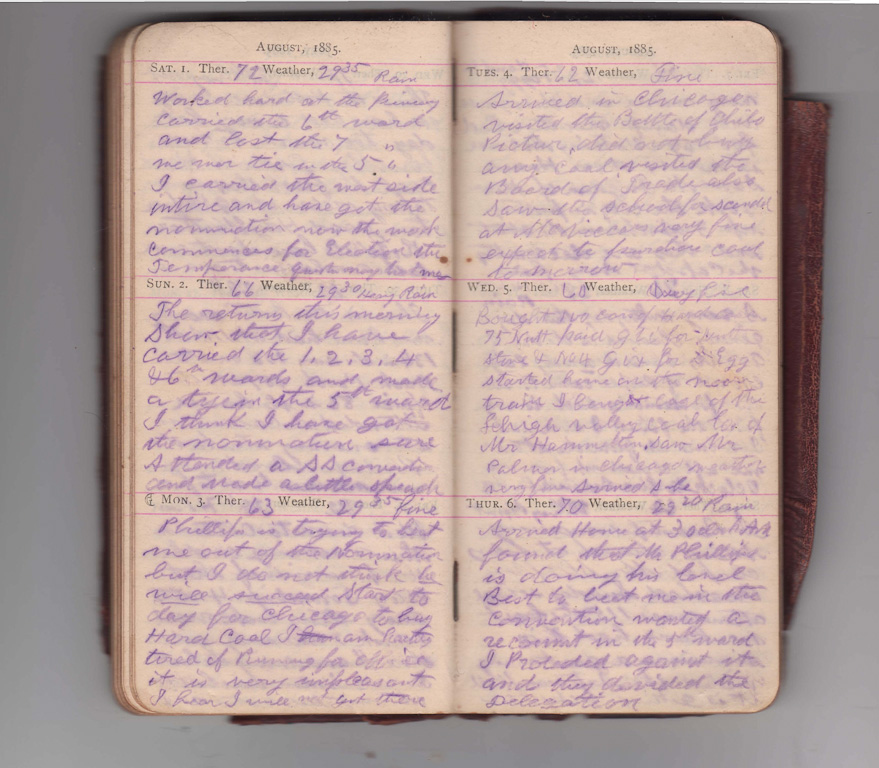 AUGUST, 1885.
SAT. 1. Ther. 72 Weather, 29 35 Rain
Worked hard at the Primary
carried the 6th ward
and lost the 7 "
me tie in the 5 "
I carried the west side
entire and have got the
nomination now the work
commences for Election the
Temperance may beat me
SUN. 2. Ther. 66 Weather, 29 30 Rain
The returns this morning
Show that I have
carried the 1, 2, 3, 4
& 6th wards and made
a tye in the 5th ward
I think I have got
the nomination sure
Attended a SS
and made a little speech
MON. 3. Ther. 63 Weather, 29 35 fine
Phillips is trying to beat
me out of the Nomination
but I do not think he
will succeed Start to
day for Chicago to buy
Hard Coal I am
tired of Runing for office
it is very unpleasant
I hear I will not get there
AUGUST, 1885.
TUES. 4. Ther. 62 Weather, Fine
Arrived in Chicago
visited the Battle of Shilo
Picture, did not buy
any coal visited the
Board of Trade also
Saw the school for scandal
at very fine
expect to purchase coal
to morrow
WED. 5. Ther. 60 Weather,
Bought
75 Nutt paid for
stove & Nutt for Egg
started home on the noon
train I bought coal of the
Lehigh valley coal co of
Mr Hammelton, saw Mr
Palmer in Chicago
very fine
THUR. 6. Ther. 70 Weather, 29 20 Rain
Arrived Home at 3 oclock AM
found that Mr Phillips
is doing his level
Best to beat me in the
Convention wanted a
recount in the 5th ward
I Protested against it
and they devided the
Delegation